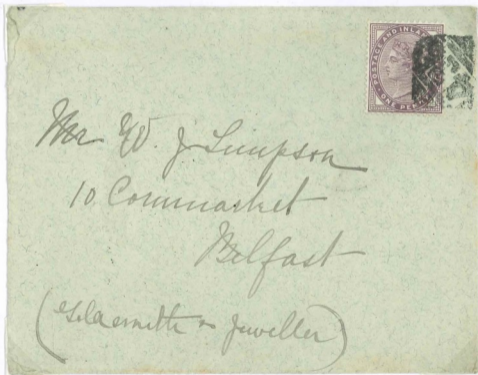 POSTAGE AND INLAND
ONE PE
Mr W. J Simpson
10 Cornmarket
Belfast
(Goldsmith & Jeweller)